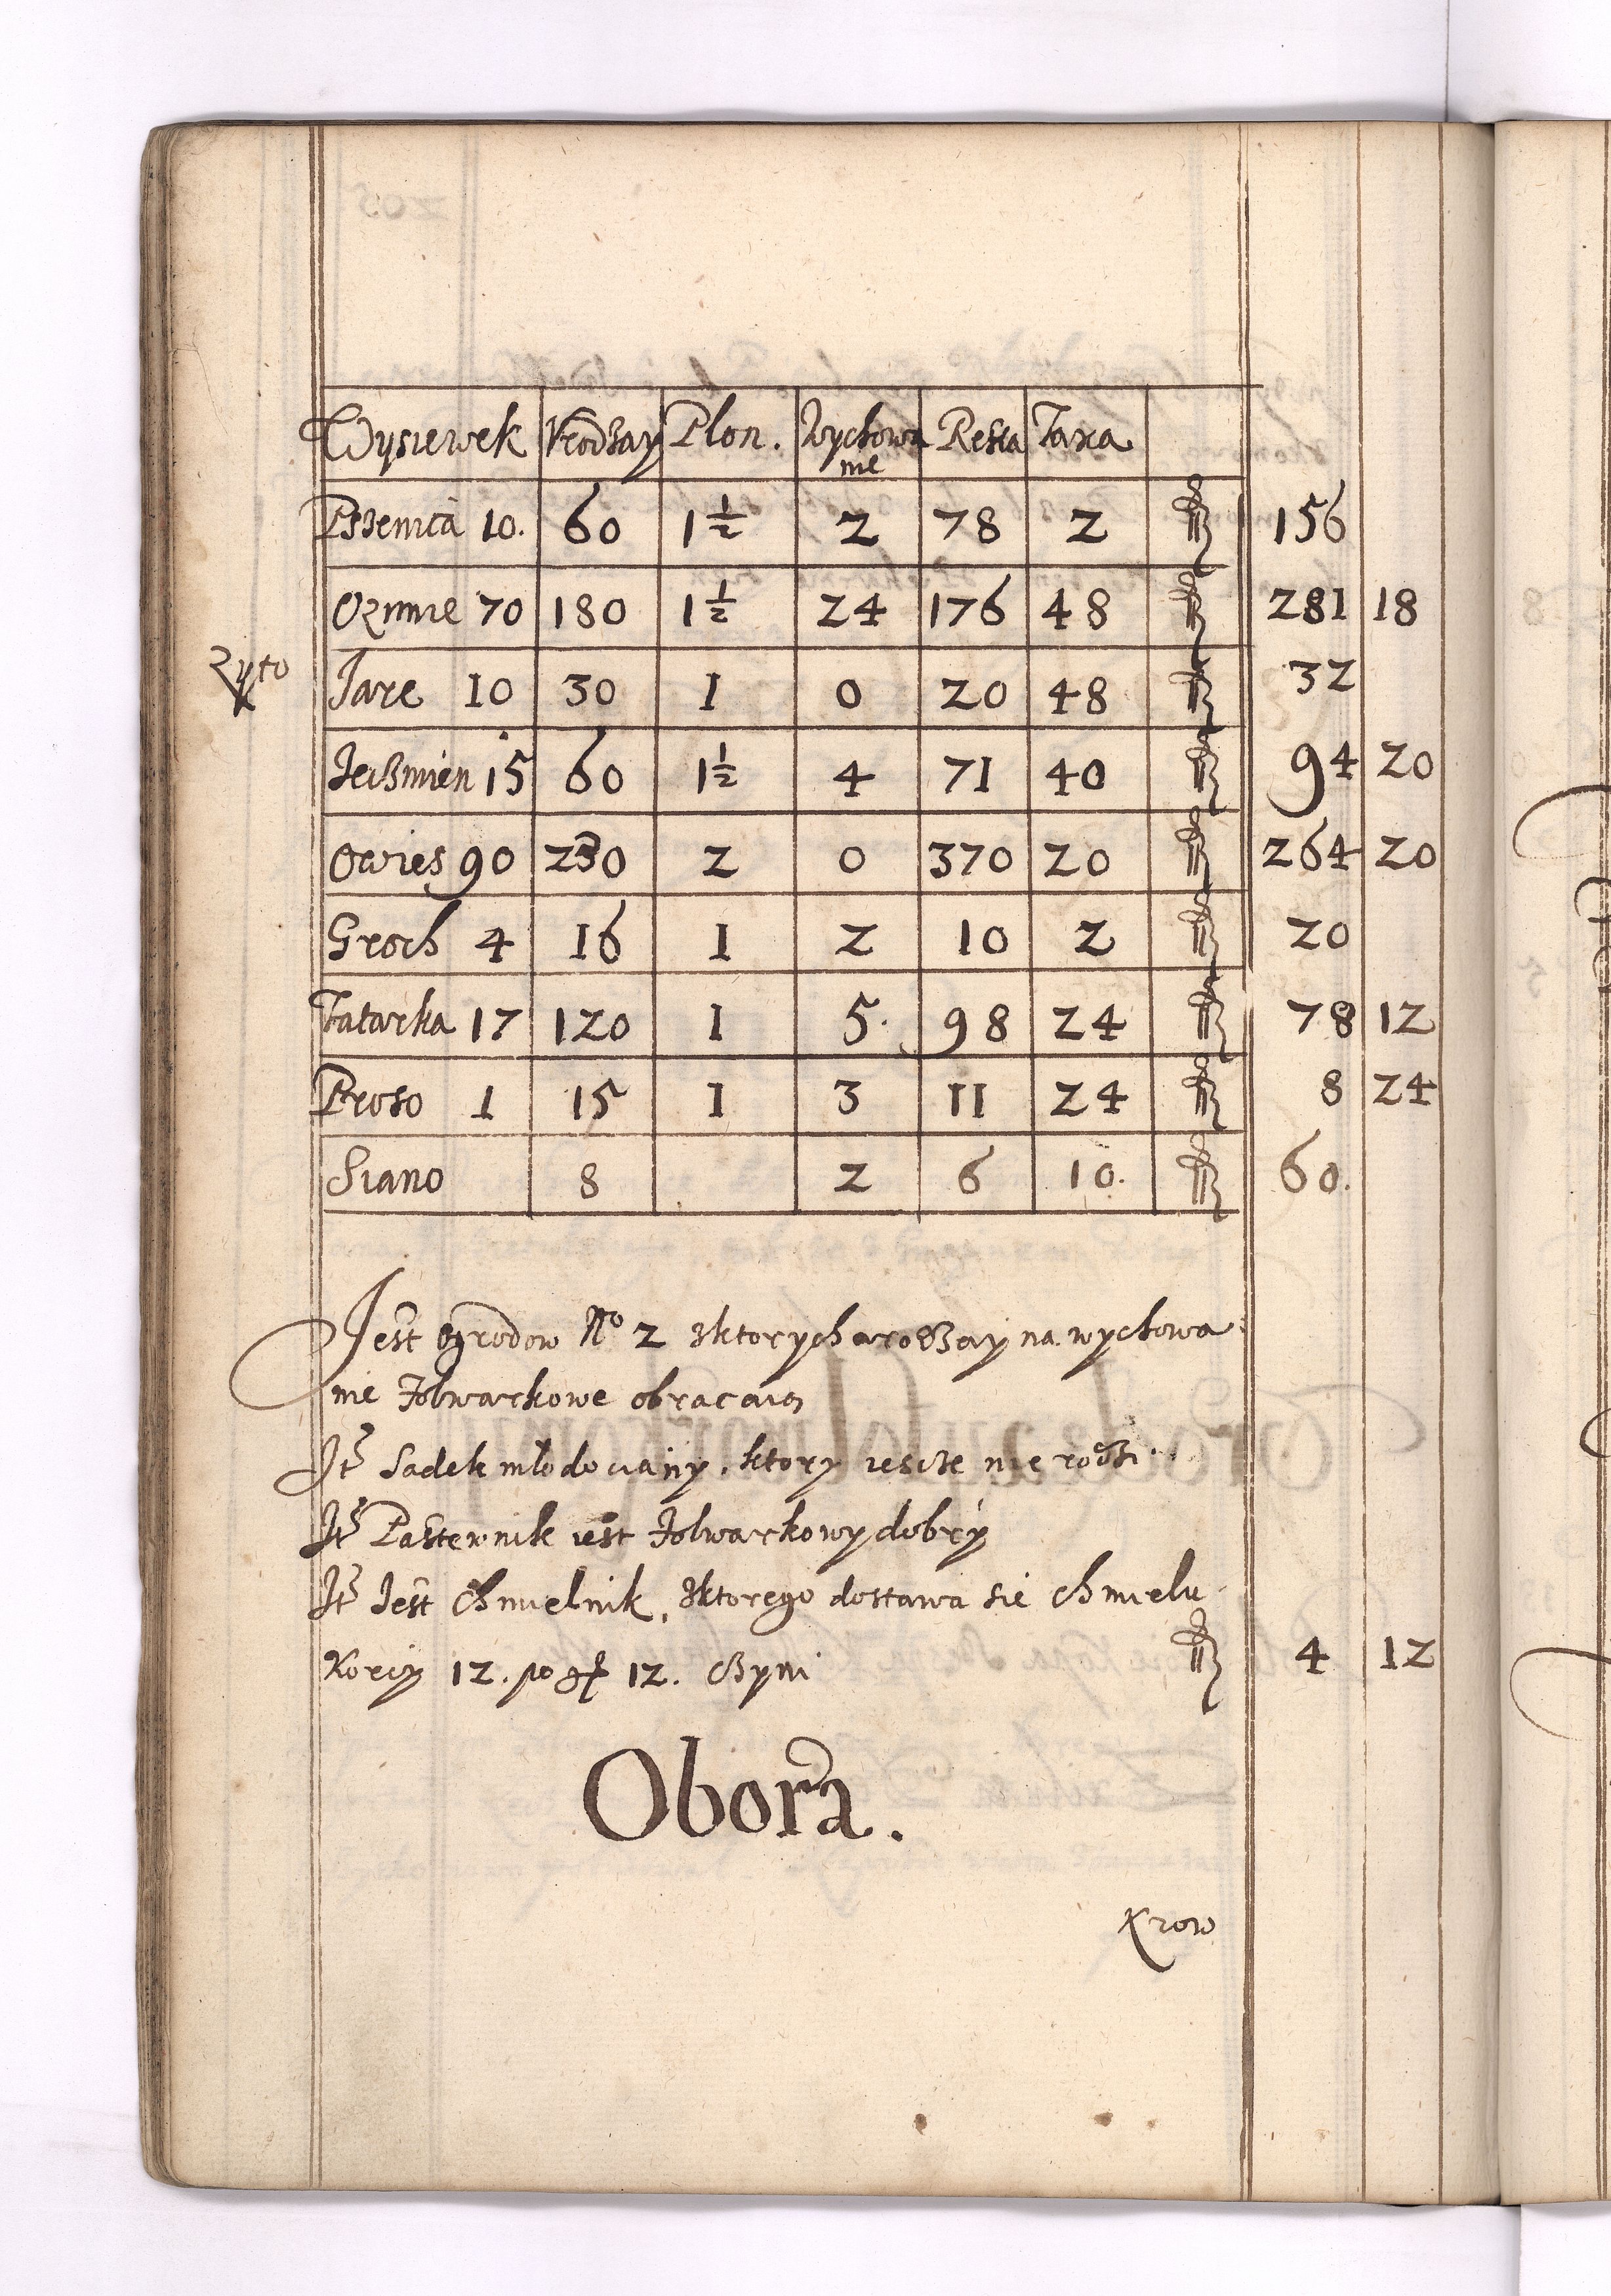 Wysiewek Vrodzay Plon. Wychowa nie Resta Taxa
Pszenica 10. 60 1 1/2 2 78 2 156
Ozimie 70 180 1 1/2 24 176 48 281 18
Zyto
Jare 10 30 1 0 20 48 32
Jeczmien 15 60 1 1/2 4 71 40 94 20
Owies 90 230 2 0 370 20 264 20
Groch 4 16 1 2 10 2 20
Tatarka 17 120 1 5. 98 24 78 12
Proso 1 15 1 3 11 24 8 24
Siano 8 2 6 10. 60.
Jest ogrodow No 2 zktorych urodzay na wychowa
nie folwarkowe obracaią
Jt Sadek młodociany, ktory iescze nie rodzi
Jt Pasternik iest folwarkowy dobry
Jt Jest Chmielnik, zktorego dostawa się chmielu
Korcy 12. po g 12. czyni 4 12
Obora.
Krow